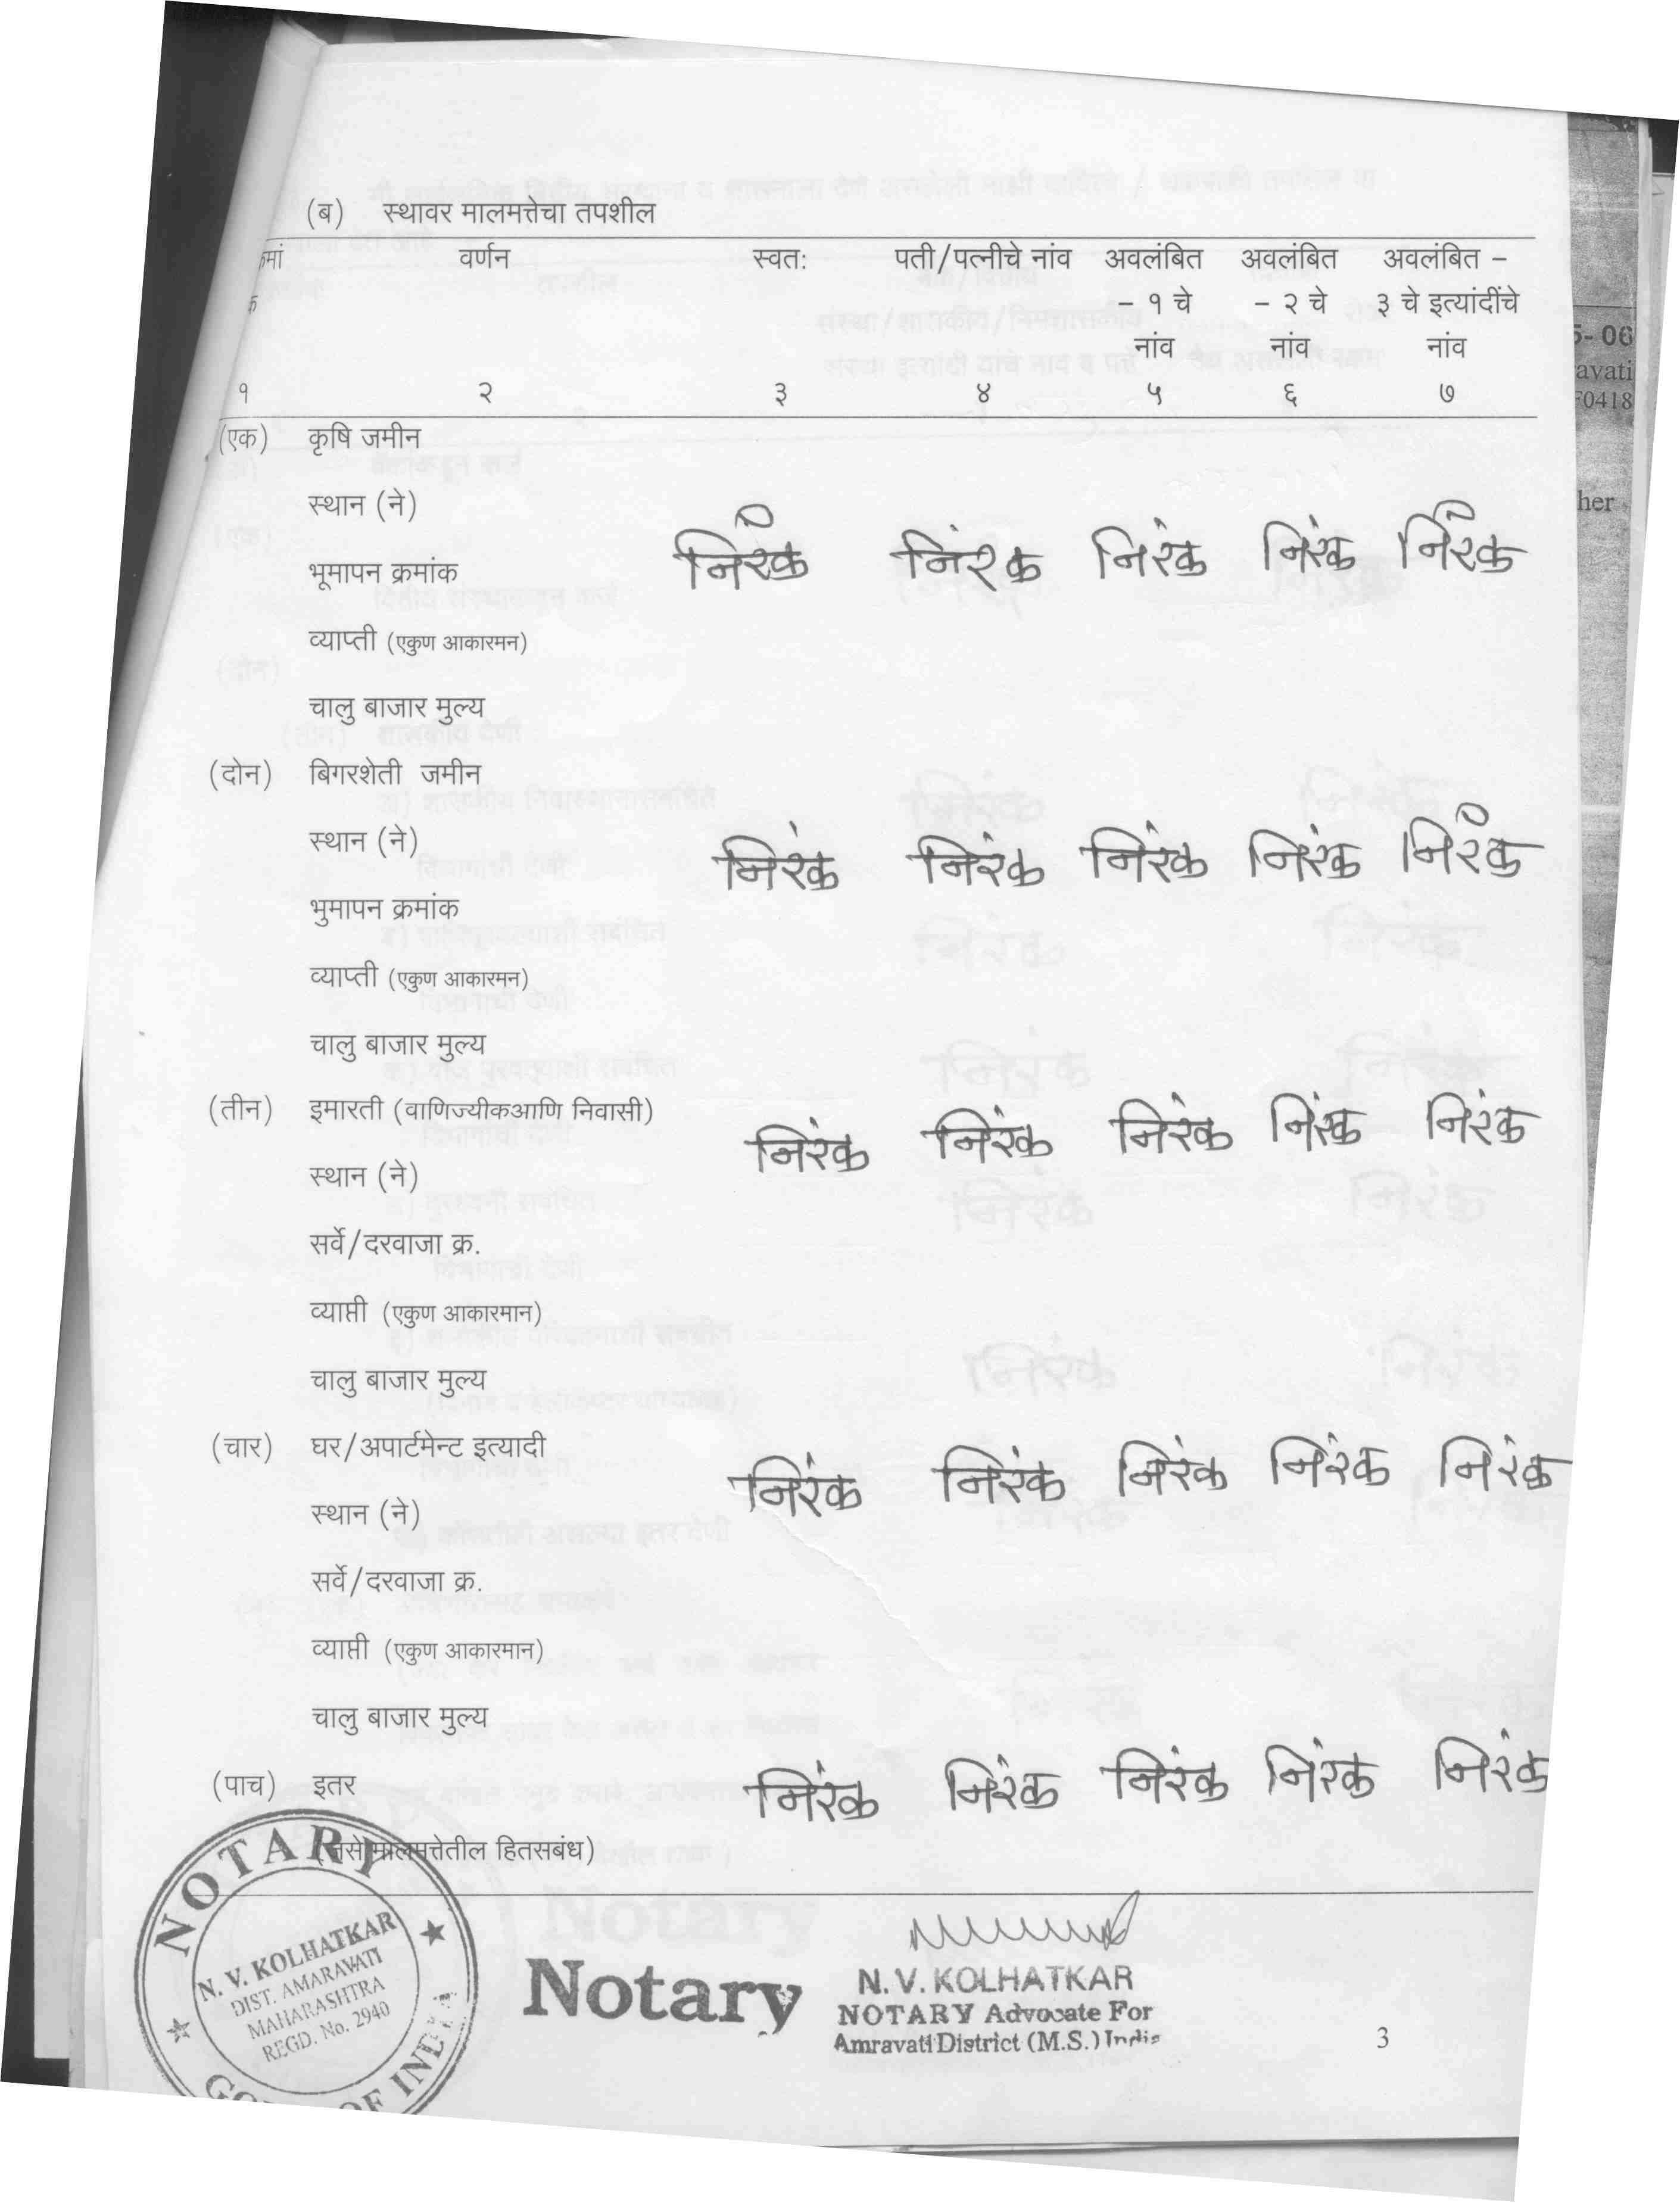 (ब) स्थावर मालमत्तेचा तपशील
वर्णन स्वत: पती/पत्नीचे नांव अवलंबित अवलंबित अवलंबित –
– १ चे – २ चे ३ चे इत्यांदींचे
नांव नांव नांव
१ २ ३ ४ ५ ६ ७
(एक) कृषि जमीन
स्थान (ने)
निरंक निरंक निरंक निरंक निरंक
भूमापन क्रमांक
व्याप्ती (एकुण आकारमन)
चालु बाजार मुल्य
(दोन) बिगरशेती जमीन
स्थान (ने)
निरंक निरंक निरंक निरंक निरंक
भुमापन क्रमांक
व्याप्ती (एकुण आकारमन)
चालु बाजार मुल्य
(तीन) इमारती (वाणिज्यीकआणि निवासी)
निरंक निरंक निरंक निरंक निरंक
स्थान (ने)
सर्वे/दरवाजा क्र.
व्याप्ती (एकुण आकारमान)
चालु बाजार मुल्य
(चार) घर/अपार्टमेन्ट इत्यादी
निरंक निरंक निरंक निरंक निरंक
स्थान (ने)
सर्वे/दरवाजा क्र.
व्याप्ती (एकुण आकारमान)
चालु बाजार मुल्य
(पाच) इतर निरंक निरंक निरंक निरंक निरंक
(जसे मालमत्तेतील हितसबंध)
NOTARY
N. V. KOLHATKAR
DIST. AMARAVATI
MAHARASHTRA
REGD. No. 2940
OF INDIA
Notary
N.V. KOLHATKAR
NOTARY Advocate For
Amravati District (M.S.) India
3
5-06
avati
F0418
her